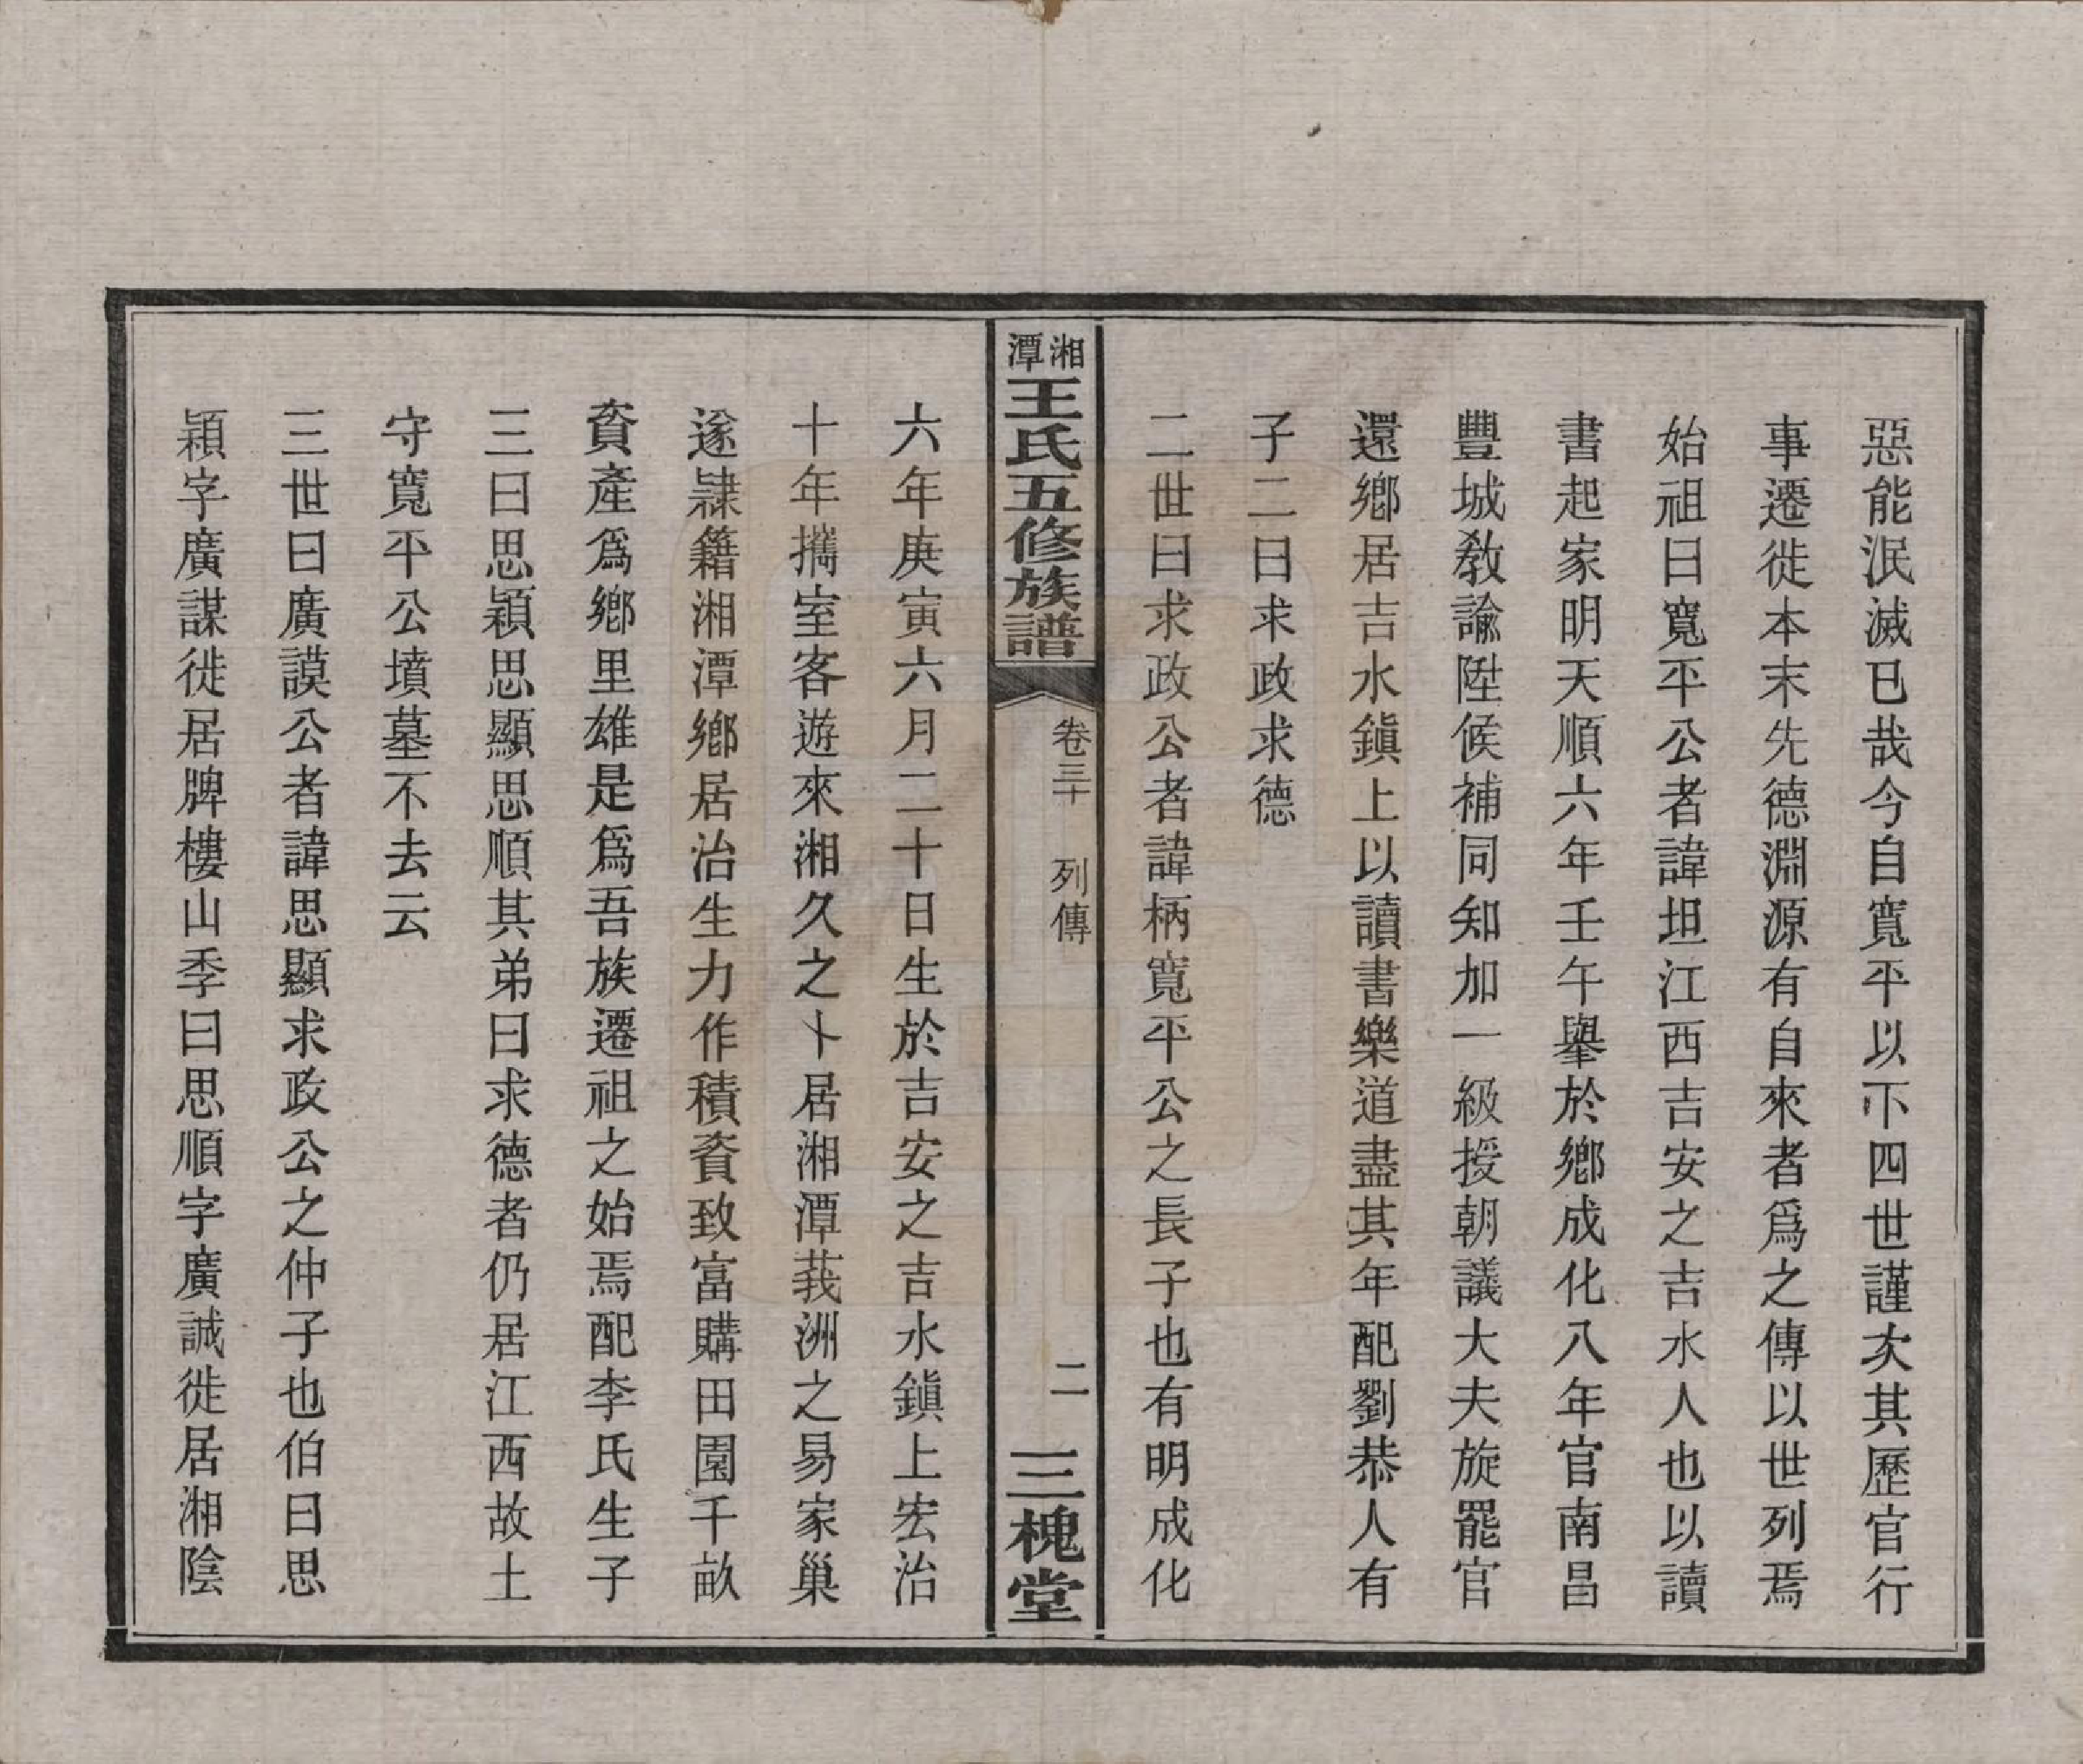 惡能泯滅已哉今自寬平以下四世謹次其歷官行
事遷徙本末先德淵源有自來者爲之傳以世列焉
始祖曰寬平公者諱坦江西吉安之吉水人也以讀
書起家明天順六年壬午舉於鄉成化八年官南昌
豐城敎諭陞候補同知加一級授朝議大夫旋罷官
還鄉居吉水鎭上以讀書樂道盡其年配劉恭人有
子二曰求政求德
二世曰求政公者諱柄寬平公之長子也有明成化
湘潭王氏五修族譜
卷三十
列傳
二
三槐堂
六年庚寅六月二十日生於吉安之吉水鎭上宏治
十年攜室客遊來湘久之卜居湘潭莪洲之易家巢
遂隸籍湘潭鄉居治生力作積資致富購田園千畝
資產爲鄉里雄是爲吾族遷祖之始焉配李氏生子
三曰思穎思顯思順其弟曰求德者仍居江西故土
守寬平公墳墓不去云
三世曰廣謨公者諱思顯求政公之仲子也伯曰思
穎字廣謀徙居牌樓山季曰思順字廣誠徙居湘陰